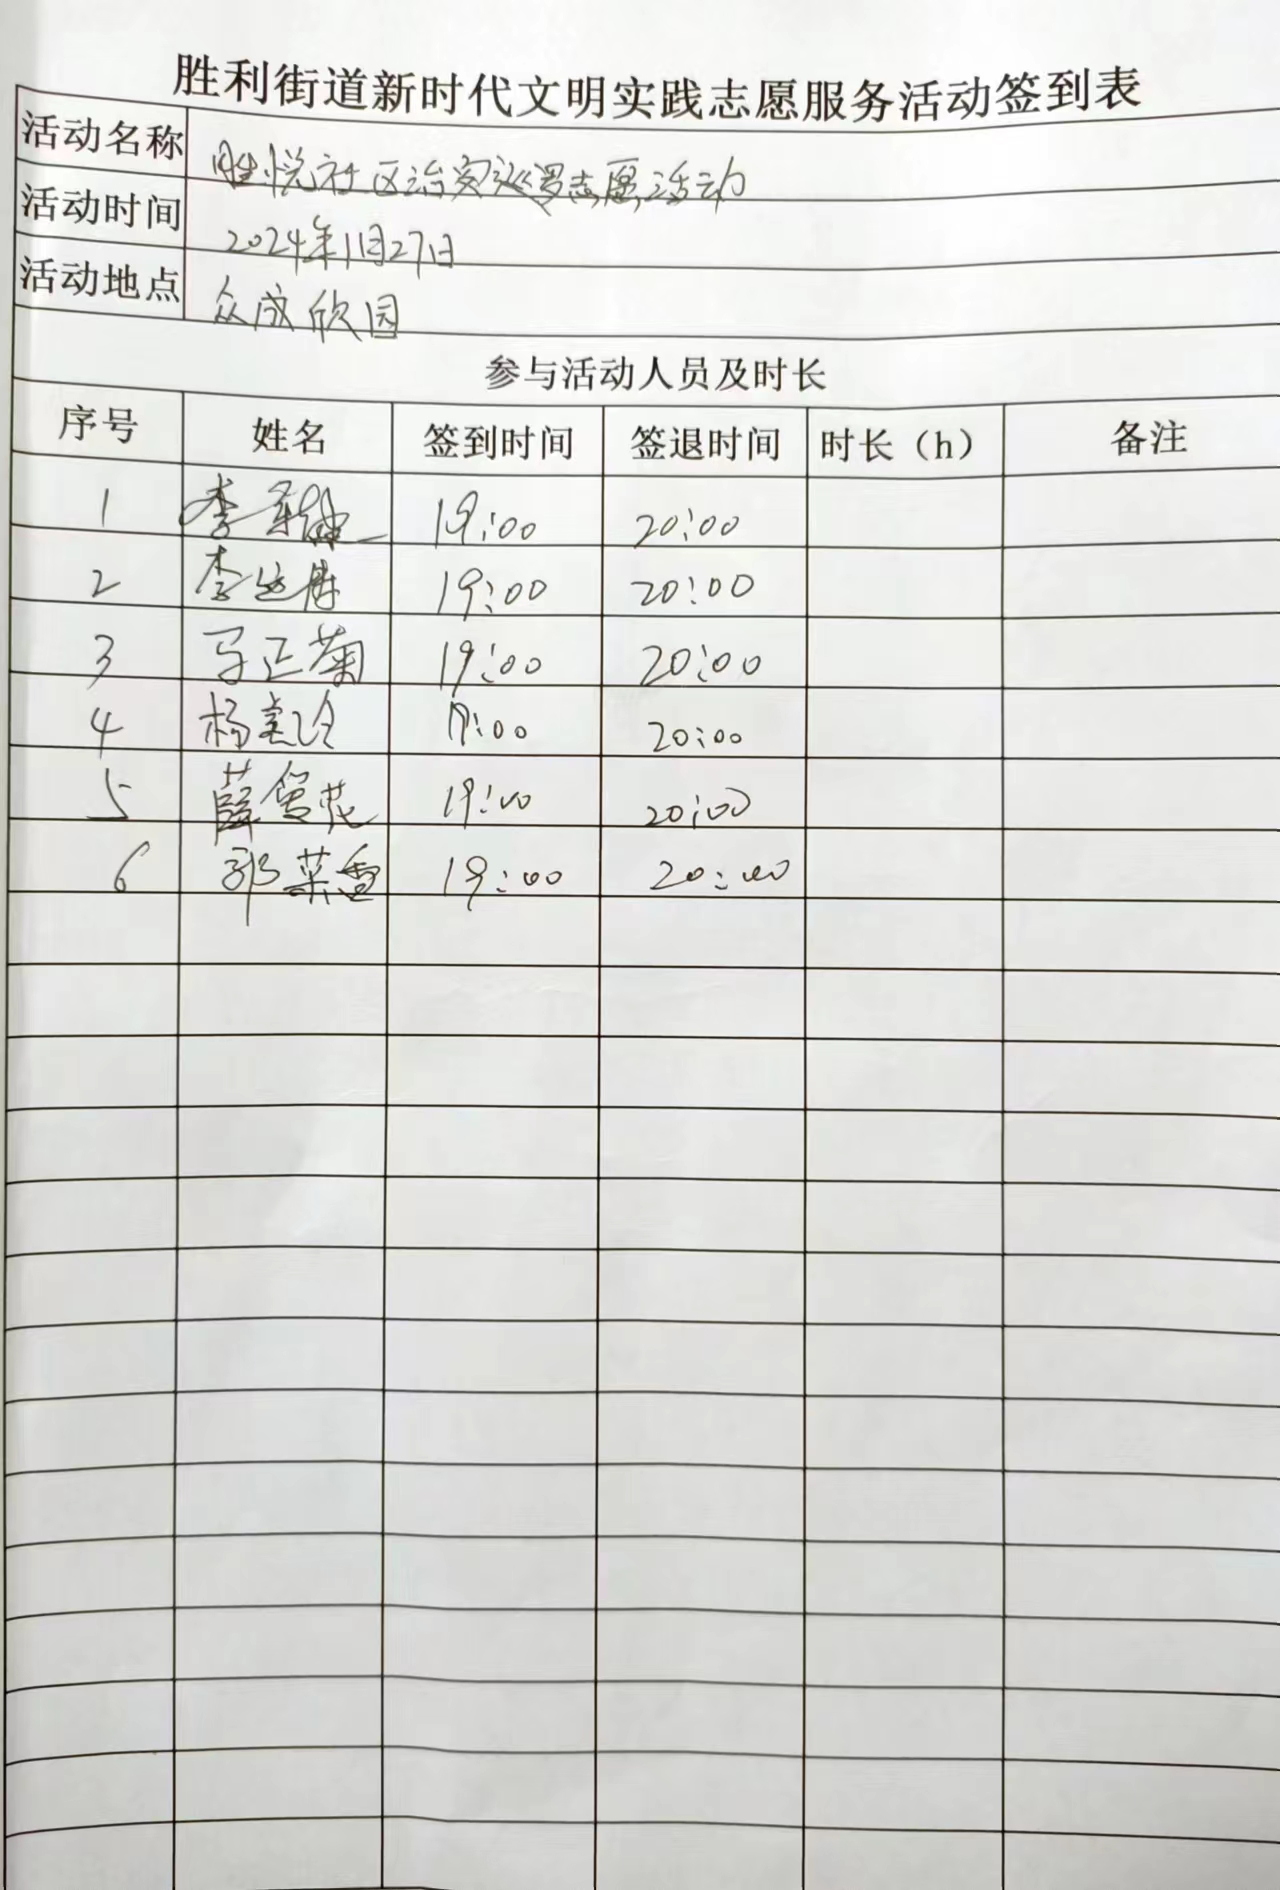 胜利街道新时代文明实践志愿服务活动签到表
活动名称 胜悦社区治安巡逻志愿活动
活动时间 2024年1月27日
活动地点 众成欣园
参与活动人员及时长
序号 姓名 签到时间 签退时间 时长（h） 备注
1 李 19:00 20:00
2 李 19:00 20:00
3 马正菊 19:00 20:00
4 杨 19:00 20:00
5 薛雪花 19:00 20:00
6 郭菜香 19:00 20:00